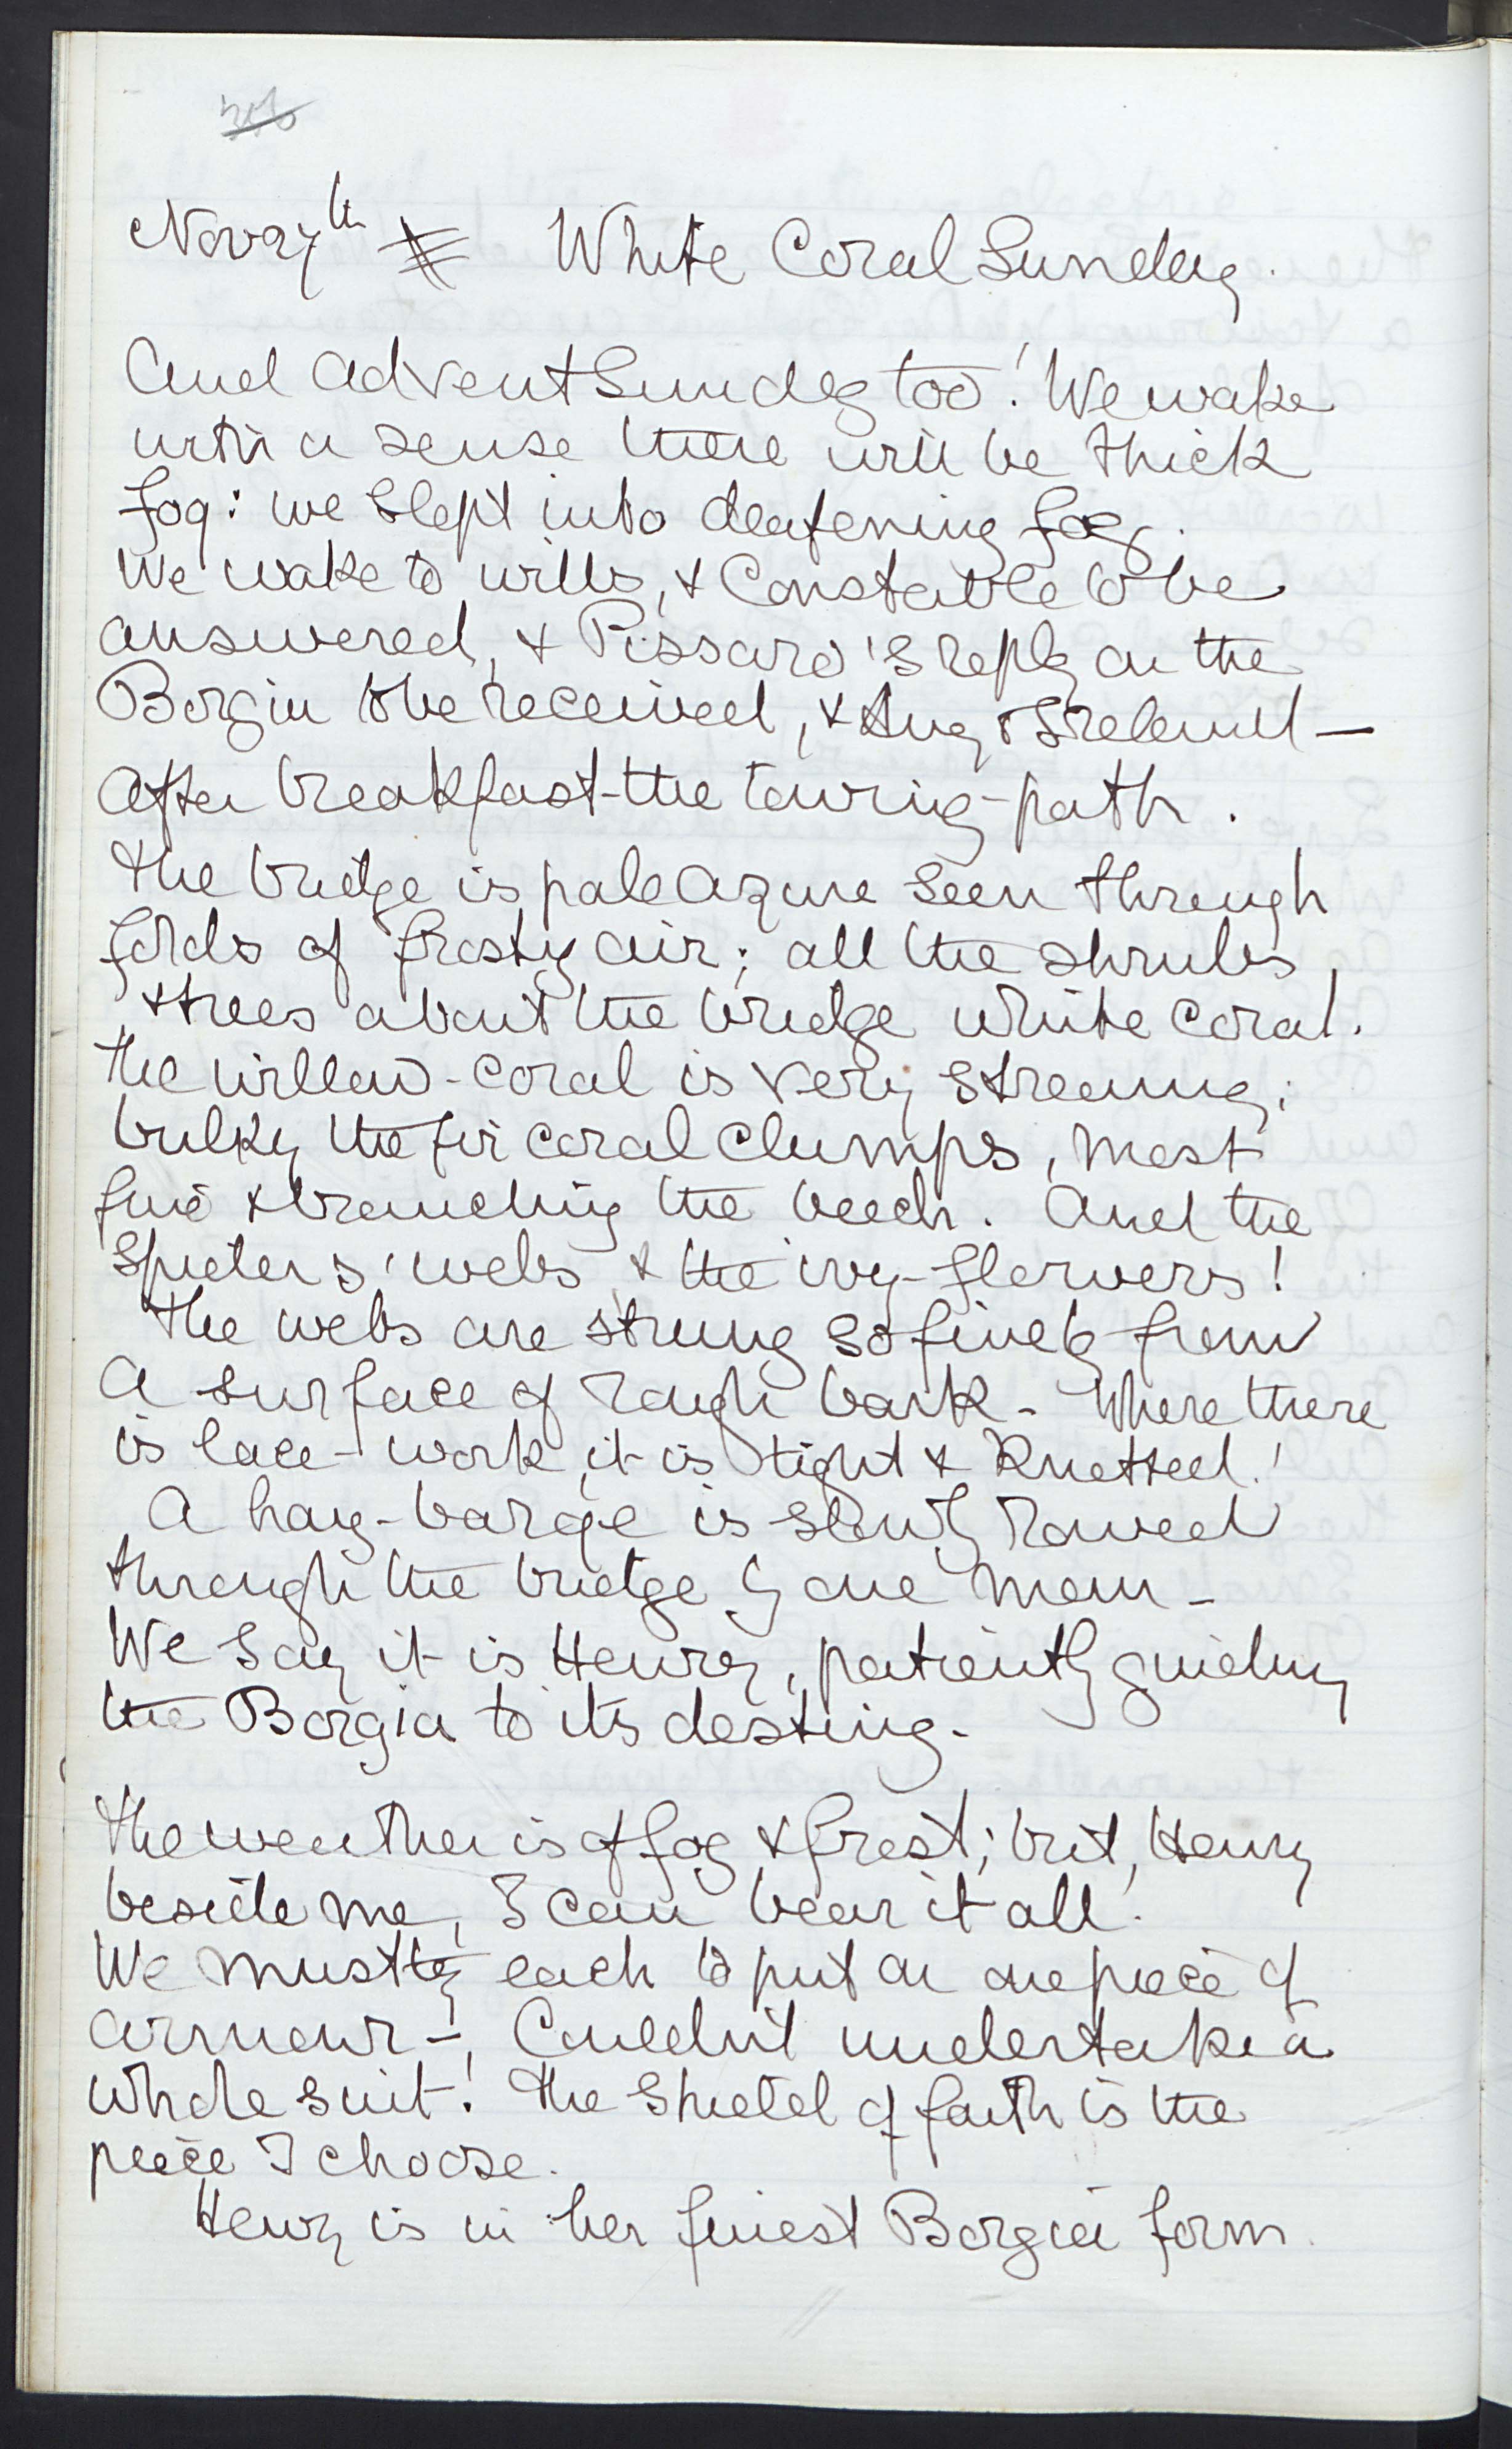 Nov 27th White Coral Sunday.
And Advent Sunday too! We wake
with a sense there will be thick
fog: we slept into deafening fog.
We wake to wills, & Constable to be
answered, & Pissaro's reply on the
Borgia to be received, & Aug & Ireland —
After breakfast - the towing-path.
The bridge is pale azure seen through
folds of frosty air; all the shrubs,
& trees about the bridge white coral.
The willow-coral is very streaming;
bulky the fir coral clumps, most
fine & branching the beech. And the
spiders' webs & the ivy-flowers!
The webs are strung so finely from
a surface of rough bark - Where there
is lace-work, it is tight & knotted!
A hay-barge is slowly rowed
through the bridge by one man -
We say it is Henry, patiently guiding
the Borgia to its destiny.
The weather is of fog & frost; but, Henry
beside me, I can bear it all.
We must try each to put on one piece of
armour -, Couldn't undertake a
whole suit! The shield of faith is the
piece I choose.
Henry is in her finest Borgia form.